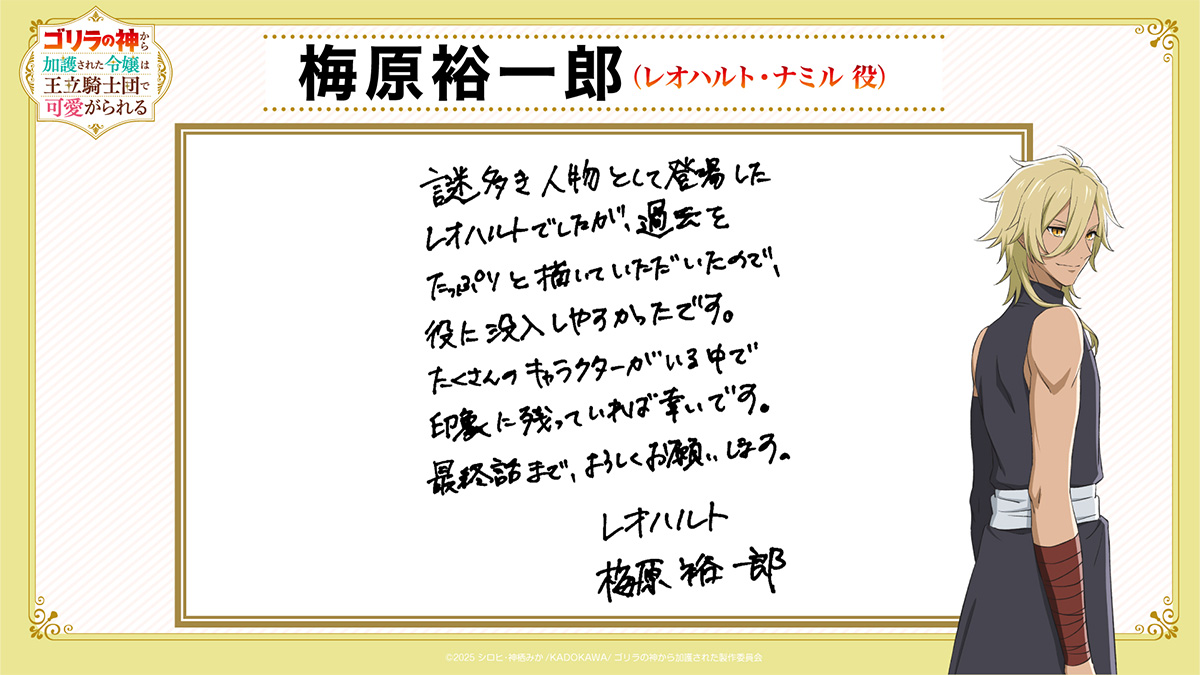 ゴリラの神から
加護された令嬢は
王立騎士団で
可愛がられる
梅原裕一郎(レオハルト・ナミル 役)
謎多き人物として登場した
レオハルトでしたが、過去を
たっぷりと描いていただいたので、
役に没入しやすかったです。
たくさんのキャラクターがいる中で
印象に残っていれば幸いです。
最終話まで、よろしくお願いします。
レオハルト
梅原裕一郎
©2025 シロヒ・神栖みか/KADOKAWA/ゴリラの神から加護された製作委員会